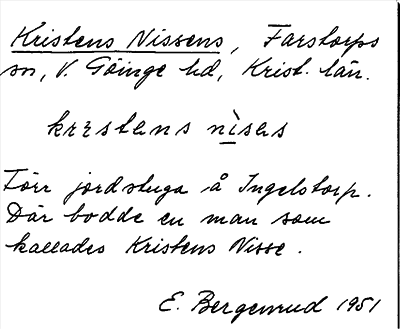 Kristens Nissens, Farstorps
sn, V. Göinge hd, Krist. län.
krɪstens nìses
Förr jordstuga å Ingelstorp.
Där bodde en man som
kallades Kristens Nisse.
E. Bergenrud 1951